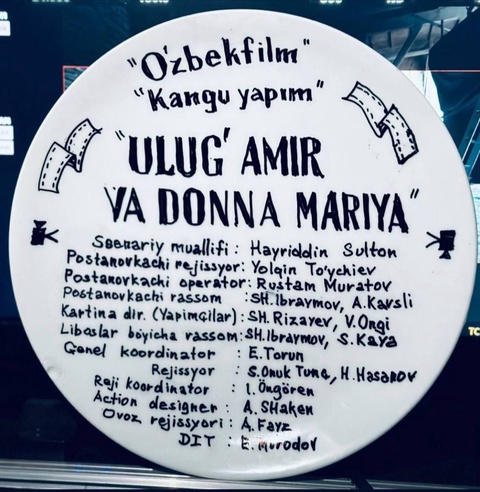 "O'zbekfilm"
"Kangu yapım"
"ULUG' AMIR
VA DONNA MARIYA"
Ssenariy muallifi : Hayriddin Sulton
Postanovkachi rejissyor: Yolqin To'ychiev
Postanovkachi operator: Rustam Muratov
Postanovkachi rassom : SH. Ibraymov, A. Karslı
Kartina dir. (Yapımçılar) : SH. Rizayev, V. Ongi
Liboslar bo'yicha rassom: SH. Ibraymov, S. Kaya
Genel koordinator : E. Torun
Rejissyor : S. Onuk Tunç, H. Hasanov
Reji koordinator : I. Öngören
Action designer : A. SHaken
Ovoz rejissyori : A. Fayz
DIT : E. Murodov